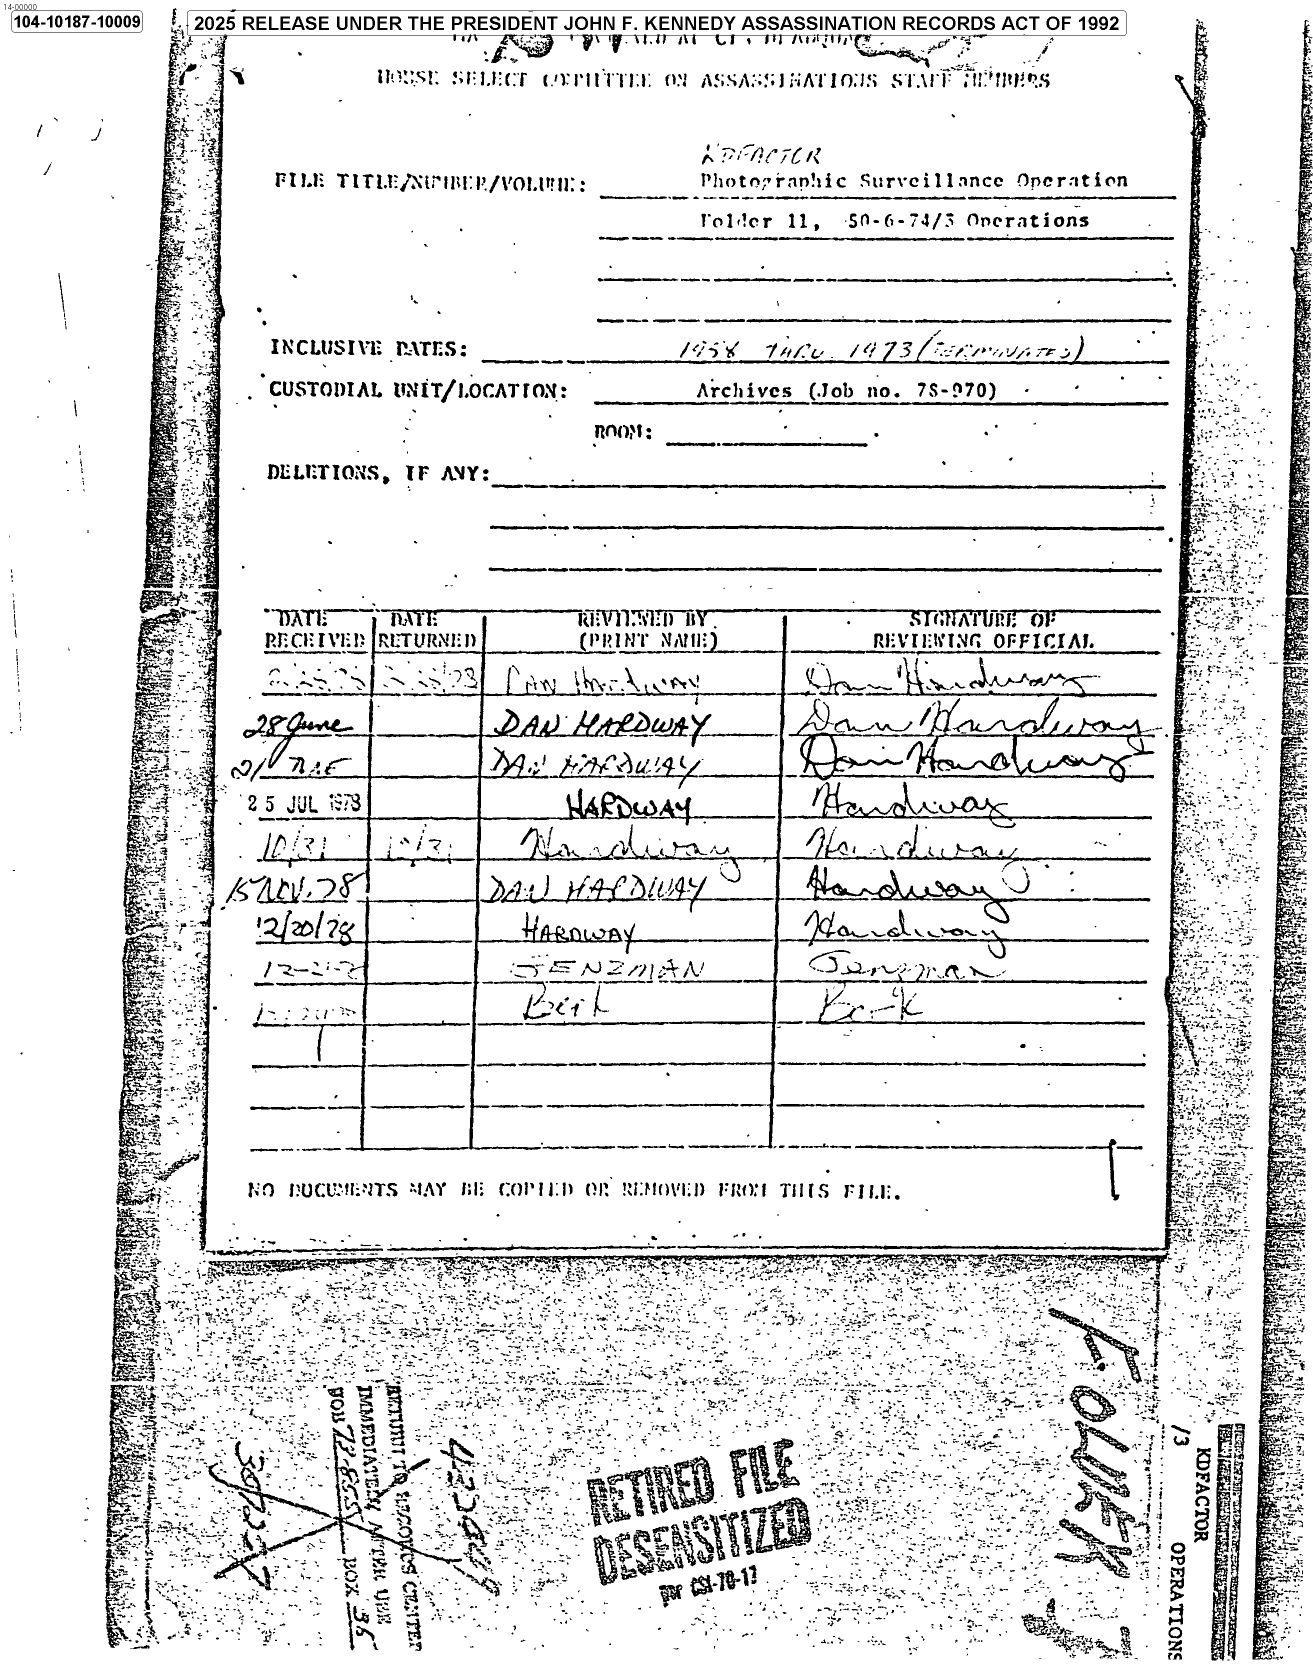 14-00000
104-10187-10009
2025 RELEASE UNDER THE PRESIDENT JOHN F. KENNEDY ASSASSINATION RECORDS ACT OF 1992
HOUSE SELECT COMMITTEE ON ASSASSINATIONS STAFF MEMBERS
KDFACTOR
FILE TITLE/NUMBER/VOLUME: Photographic Surveillance Operation
Folder 11, 50-6-74/3 Operations
INCLUSIVE DATES: 1958 THRU 1973 (TERMINATED)
CUSTODIAL UNIT/LOCATION: Archives (Job no. 78-970)
ROOM:
DELETIONS, IF ANY:
DATE RECEIVED DATE RETURNED REVIEWED BY (PRINT NAME) SIGNATURE OF REVIEWING OFFICIAL
DAN HARDWAY Dan Hardway
28 June DAN HARDWAY Dan Hardway
21 DAN HARDWAY Dan Hardway
25 JUL 1978 HARDWAY Hardway
10/31 10/31 Hardway Hardway
15 NOV. 78 DAN HARDWAY Hardway
12/20/78 HARDWAY Hardway
JENZMAN Jenzman
Berk Berk
NO DOCUMENTS MAY BE COPIED OR REMOVED FROM THIS FILE.
RETURN TO RECORDS CENTER
IMMEDIATELY AFTER USE
JOB BOX 36
RETIRED FILE
DESENSITIZED
per CSI-70-17
KDFACTOR
/3 OPERATIONS